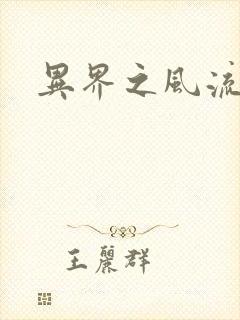 異界之風流
王麗群